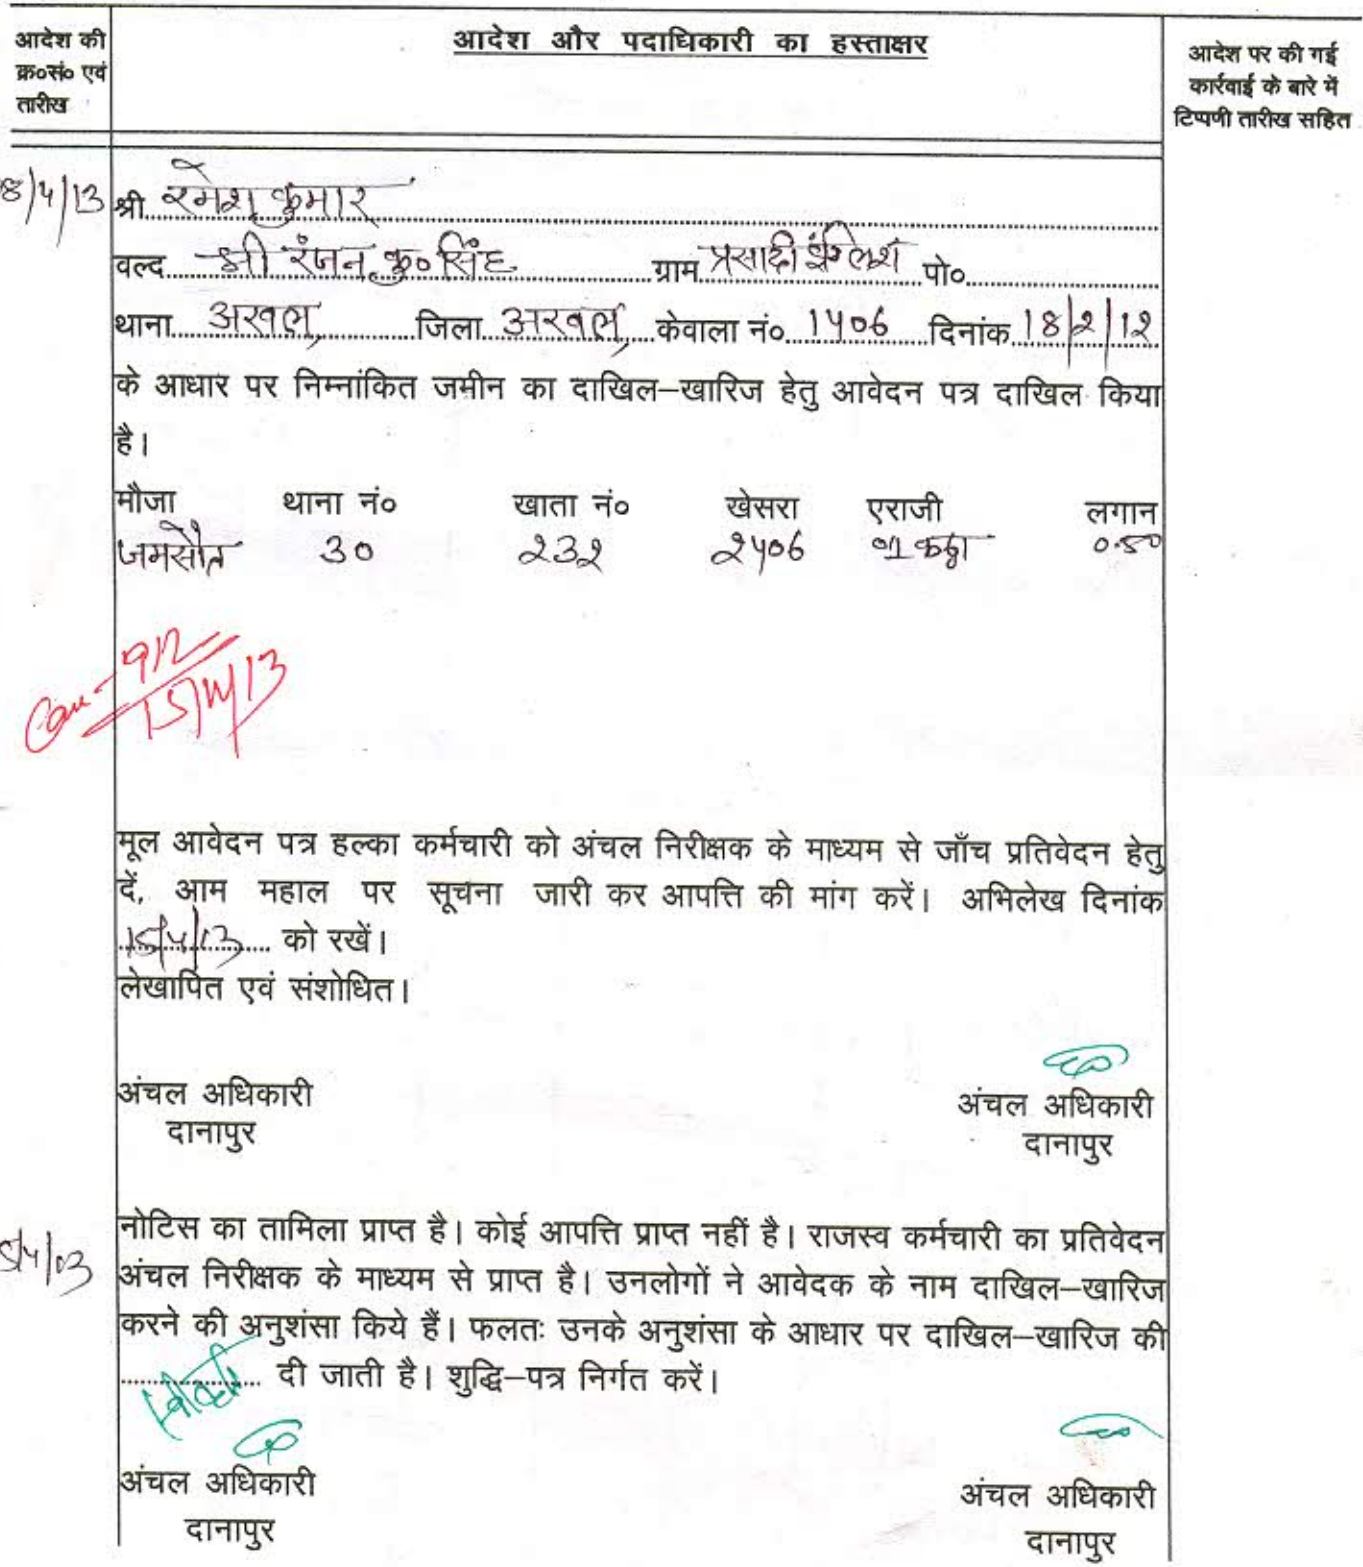 आदेश की
क्र०सं० एवं
तारीख
आदेश और पदाधिकारी का हस्ताक्षर
आदेश पर की गई
कार्रवाई के बारे में
टिप्पणी तारीख सहित
8/4/13
श्री रमेश कुमार
वल्द श्री रंजन कु० सिंह ग्राम प्रसादी इंग्लिश पो०
थाना अरवल जिला अरवल केवाला नं० 1406 दिनांक 18/2/12
के आधार पर निम्नांकित जमीन का दाखिल–खारिज हेतु आवेदन पत्र दाखिल किया
है।
मौजा थाना नं० खाता नं० खेसरा एराजी लगान
जमसौत 30 232 2406 01 कट्ठा 0.50
15/4/13
मूल आवेदन पत्र हल्का कर्मचारी को अंचल निरीक्षक के माध्यम से जाँच प्रतिवेदन हेतु
दें, आम महाल पर सूचना जारी कर आपत्ति की मांग करें। अभिलेख दिनांक
15/4/13 को रखें।
लेखापित एवं संशोधित।
अंचल अधिकारी अंचल अधिकारी
दानापुर दानापुर
नोटिस का तामिला प्राप्त है। कोई आपत्ति प्राप्त नहीं है। राजस्व कर्मचारी का प्रतिवेदन
अंचल निरीक्षक के माध्यम से प्राप्त है। उनलोगों ने आवेदक के नाम दाखिल–खारिज
करने की अनुशंसा किये हैं। फलतः उनके अनुशंसा के आधार पर दाखिल–खारिज की
स्वीकृति दी जाती है। शुद्धि–पत्र निर्गत करें।
अंचल अधिकारी अंचल अधिकारी
दानापुर दानापुर